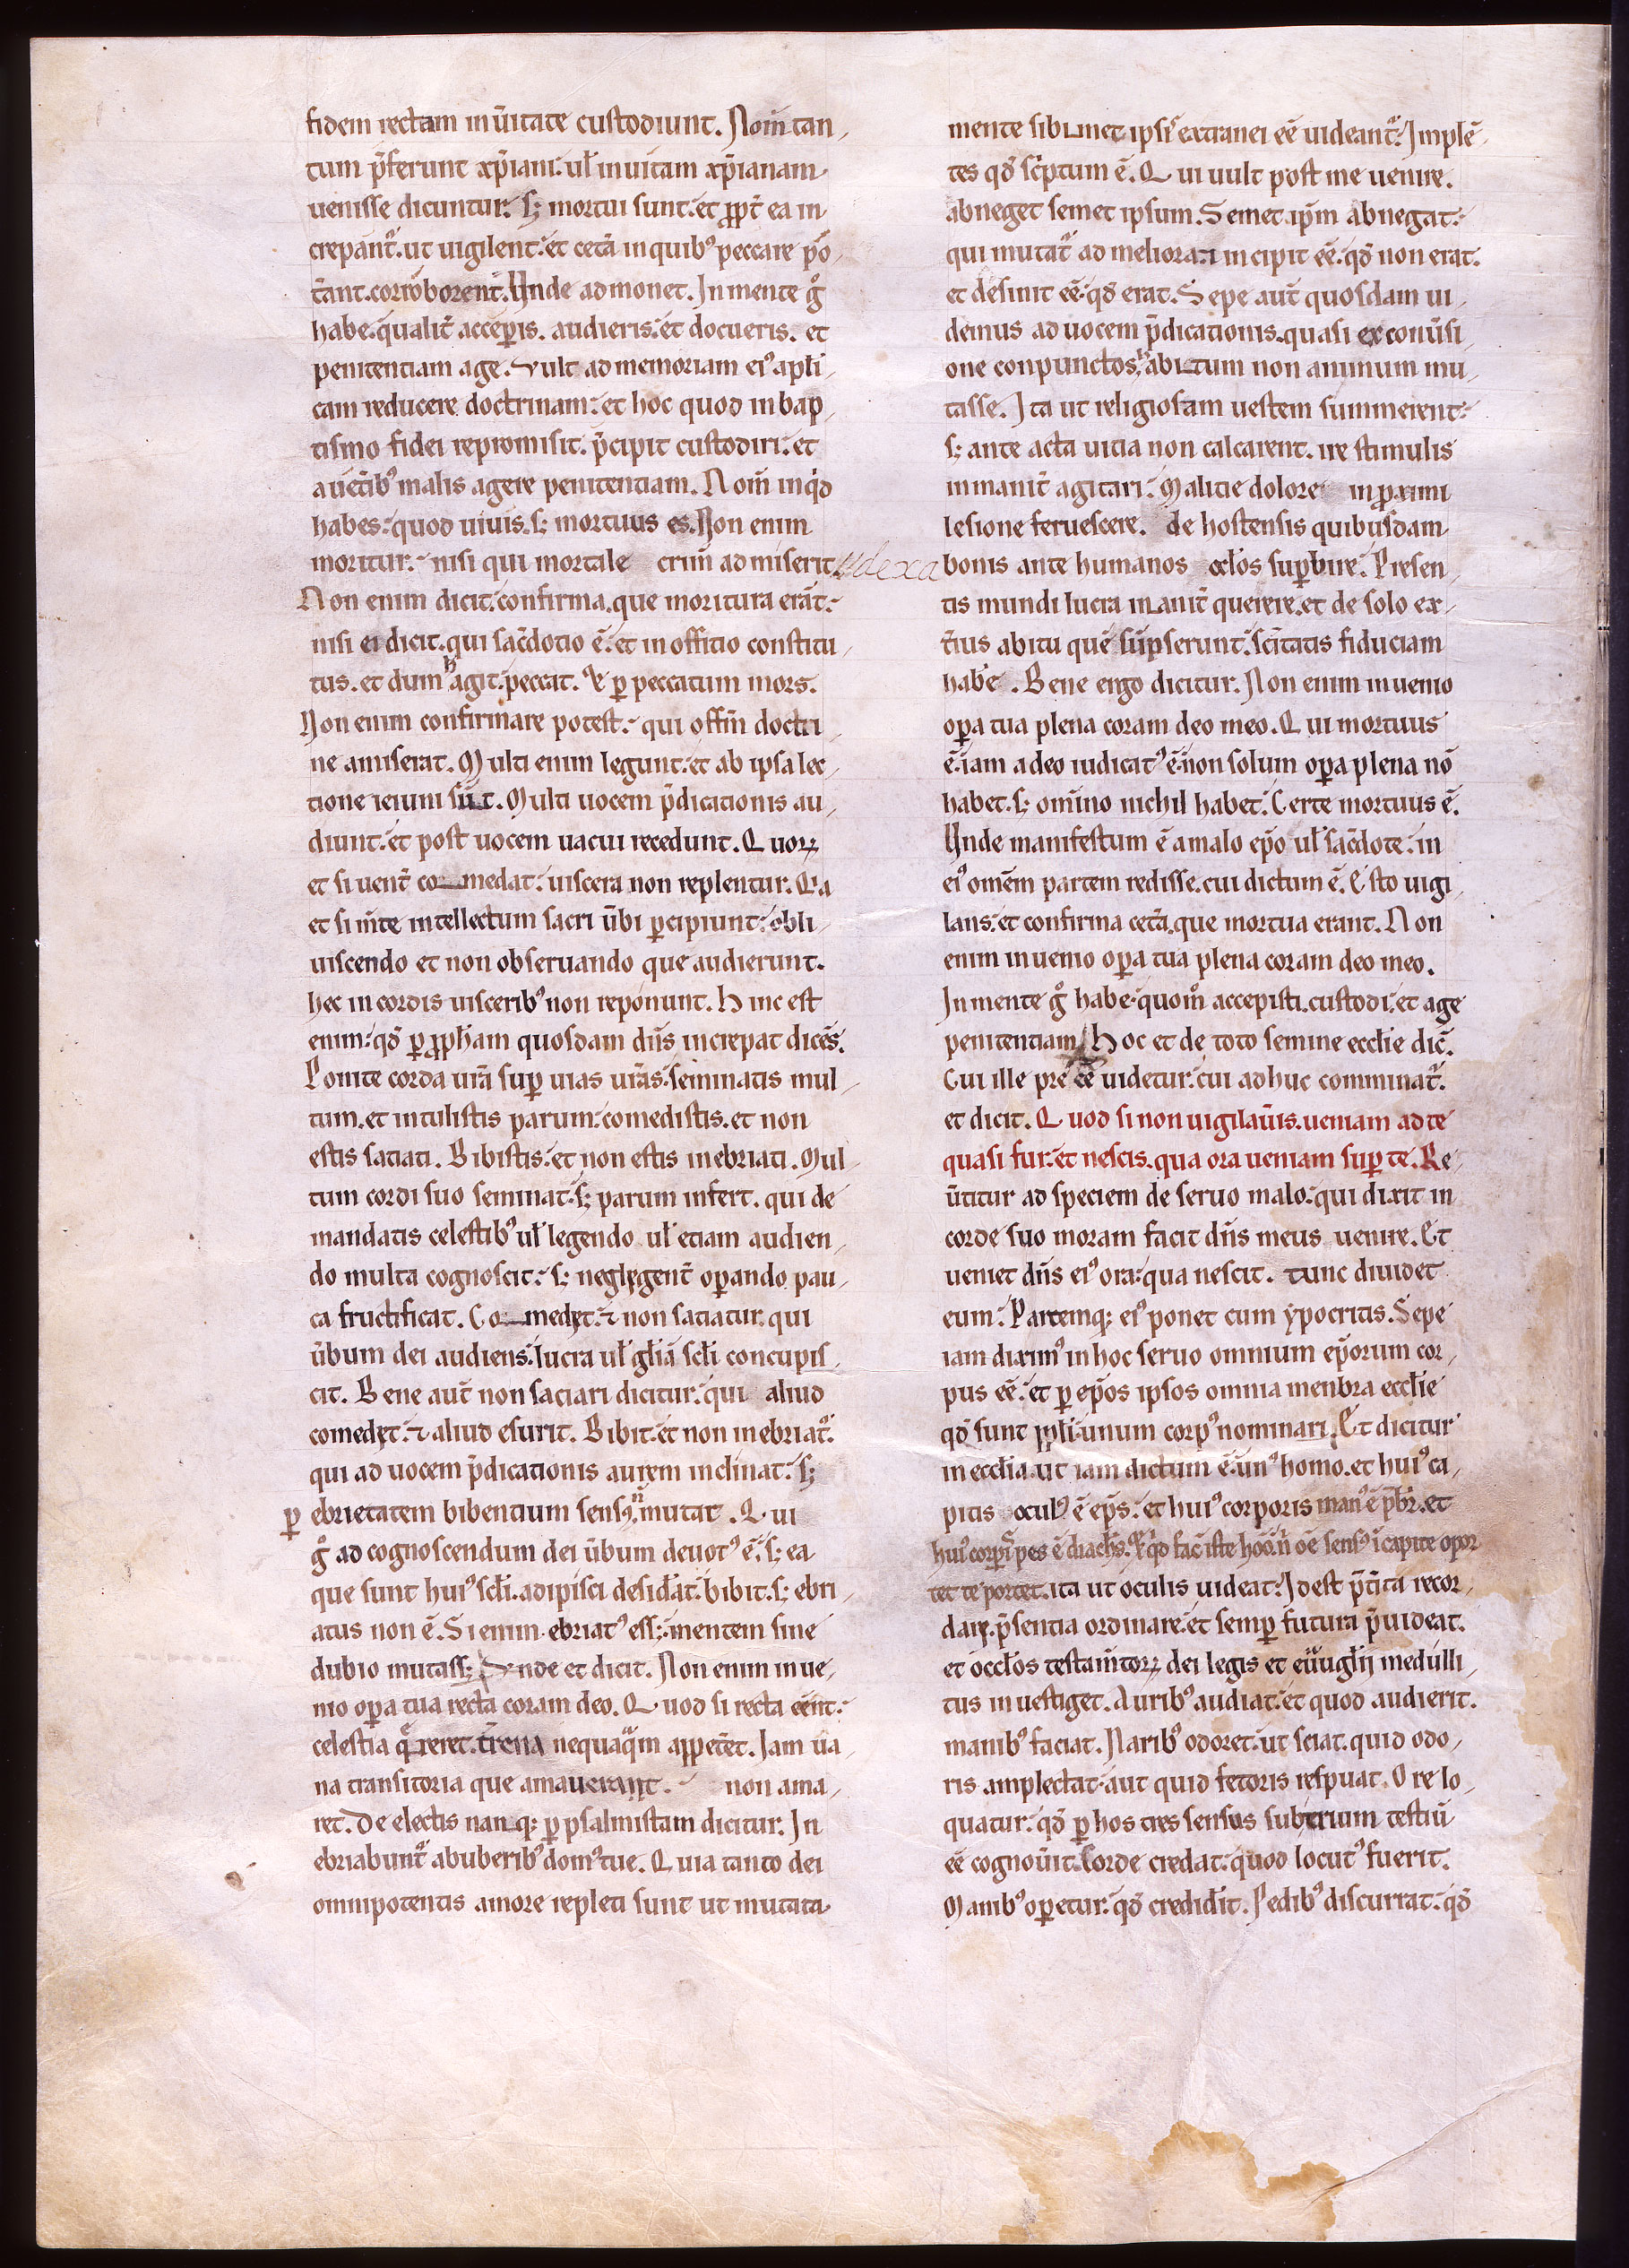 fidem rectam in ũitate custodiunt. Noīn tan-
tum p̃ferunt xp̃iani: uł in uitam xp̃ianam
uenisse dicuntur: s; mortui sunt. et ꝓpt̃ ea in
crepant᷑. ut uigilent: et cet̃a in quibꝰ peccare po
t̃ant. corroborent. Unde admonet. In mente g̊
habe. qualit̃ acceꝑis. audieris: et docueris. et
penitentiam age. Vult ad memoriam eiꝰ apłi-
cam reducere doctrinam: et hoc quod in bap-
tismo fidei repromisit. p̃cipit custodiri: et
a uet̃ibꝰ malis agere penitentiam. Noīn inq̇d
habes: quod uiuis. s; mortuus es. Non enim
moritur: nisi qui mortale crim̃ admiserit.
Non enim dicit. confirma. que moritura erãt:
nisi ei dicit. qui sac̃dotio ẽ: et in offitio constitu-
tus. et dum h̊ agit. peccat. & ꝑ peccatum mors.
Non enim confirmare potest: qui offm̃ doctri-
ne amiserat. Multi enim legunt: et ab ipsa lec-
tione ieiuni sũt. Multi uocem p̃dicationis au-
diunt: et post uocem uacui recedunt. Quoꝝ
et si uent̃ comedat: uiscera non replentur. Qa
et si m̃te intellectum sacri ũbi ꝑcipiunt: obli-
uiscendo et non obseruando que audierunt.
hec in cordis uisceribꝰ non reponunt. Hinc est
enim: qd̃ ꝑ ꝓpħam quosdam dñs increpat dicẽs.
Ponite corda ur̃a suꝑ uias ur̃as: seminatis mul-
tum. et intulistis parum: comedistis. et non
estis satiati. Bibistis: et non estis inebriati. Mul-
tum cordi suo seminat: s; parum infert. qui de
mandatis celestibꝰ uł legendo uł etiam audien-
do multa cognoscit: s; neglegent̃ oꝑando pau-
ca fructificat. Comedet: ⁊ non satiatur. qui
ũbum dei audiens: lucra uł głiã scłi concupis-
cit. Bene aut̃ non saciari dicitur: qui aliud
comedet: ⁊ aliud esurit. Bibit: et non inebriat᷑.
qui ad uocem p̃dicationis aurem inclinat: s;
ꝑ ebrietatem bibentium sensꝰ ñ mutat. Qui
g̊ ad cognoscendum dei ũbum deuotꝰ ẽ: s; ea
que sunt huiꝰ scłi. adipisci desid̃at. bibit. s; ebri-
atus non ẽ. Si enim ebriatꝰ ess;: mentem sine
dubio mutass; Vnde et dicit. Non enim inue-
nio oꝑa tua recta coram deo. Quod si recta eẽnt:
celestia q̃reret. t̃rena nequaq̃m appetẽt. Iam ua-
na transitoria que amauerant. non ama-
ret. De electis nanq; ꝑ psalmistam dicitur. In
ebriabunt᷑ ab uberibꝰ domꝰ tue. Quia tanto dei
omnipotentis amore repleti sunt ut mutata
mente sibimet ipsi᷒ extranei eẽ uideant᷑: Implẽ-
tes qd̃ sc̃ptum ẽ. Qui uult post me uenire.
abneget semet ipsum. Semet ip̃m abnegat:
qui mutat᷑ ad meliora: ⁊ incipit eẽ: qd̃ non erat.
et desinit eẽ: qd̃ erat. Sepe aut̃ quosdam ui-
demus ad uocem p̃dicationis. quasi ex conũsi-
one conpunctos. habitum non animum mu-
tasse. Ita ut religiosam uestem summerent:
s; ante acta uitia non calcarent. ire stimulis
inmanit̃ agitari: Malitie dolore in ꝓximi
lesione feruescere. de hostensis quibusdam
bonis ante humanos occłos suꝑbire. Presen-
tis mundi lucra inanit̃ querere. et de solo ex-
t̃ius abitu quẽ sũpserunt. sc̃itatis fiduciam
habẽ. Bene ergo dicitur. Non enim inuenio
oꝑa tua plena coram deo meo. Qui mortuus
ẽ: iam a deo iudicatꝰ ẽ: non solum oꝑa plena nõ
habet. s; omĩno nichil habet. Certe mortuus ẽ.
Unde manifestum ẽ a malo ep̃o uł sac̃dote: in
eiꝰ omẽm partem redisse. cui dictum ẽ. Esto uigi-
lans: et confirma cet̃a. que mortua erant. Non
enim inuenio oꝑa tua plena coram deo meo.
In mente g̊ habe: quom̊ accepisti. custodi: et age
penitentiam. Hoc et de toto semine eccłie dic̃.
Cui ille preẽẽ uidetur: cui ad huc comminat᷑.
et dicit. Quod si non uigilaũis. ueniam ad te
quasi fur: et nescis. qua ora ueniam suꝑ te. Re-
ũtitur ad speciem de seruo malo: qui dixit in
corde suo moram facit dñs meus uenire. Et
ueniet dñs eiꝰ ora: qua nescit. tunc diuidet
eum: Partemq; eiꝰ ponet cum ypocritis. Sepe
iam diximꝰ in hoc seruo omnium ep̃orum cor-
pus eẽ: et ꝑ ep̃os ipsos omnia menbra eccłie
qd̃ sunt ꝓpłi: unum corpꝰ nominari. Et dicitur
in eccłia. ut iam dictum ẽ: unꝰ homo. et huiꝰ ca-
pitis oculꝰ ẽ ep̃s: et huiꝰ corporis manꝰ ẽ p̃br. et
tet te portet. ita ut oculis uideat: Id est p̃t̃ita recor-
dare. p̃sentia ordinare: et semꝑ futura p̃uideat.
et occłos testam̃toꝝ dei legis et euuugłij medulli-
tus inuestiget. Auribꝰ audiat: et quod audierit.
manibꝰ faciat. Naribꝰ odoret: ut sciat. quid odo-
ris amplectat: aut quid fetoris respuat. Ore lo-
quatur: qd̃ ꝑ hos tres sensus sub trium testiũ
eẽ cognoũit. Corde credat: quod locutꝰ fuerit.
Manibꝰ oꝑetur: qd̃ credid̃it. Pedibꝰ discurrat: qd̃